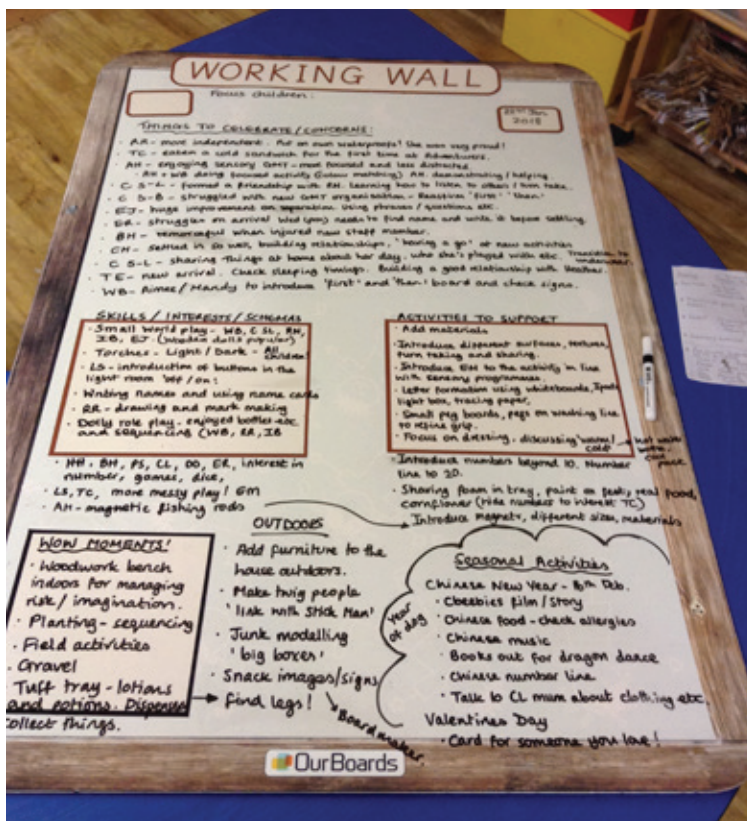 WORKING WALL
Focus children:
22nd Jan
2018
THINGS TO CELEBRATE/CONCERNS:
· RR - more independent. Put on own waterproofs! She was very proud!
· TC - eaten a cold sandwich for the first time at Adventurers.
· AH - enjoying sensory GMT - more focused and less distracted.
· AH + WB doing focused activity (colour matching) AH demonstrating/helping.
· C S-L - formed a friendship with RH. Learning how to listen to others/turn take.
· C S-B - struggled with new GMT organisation - 'first' 'then'
· EJ - huge improvement on separation. Using phrases/questions etc.
· ER - struggles on arrival Wed (pm) needs to find name and write it before settling.
· BH - remorseful when injured new staff member.
· CH - settled in so well, building relationships, 'having a go' at new activities
· C S-L - sharing things at home about her day, who she's played with etc. Transition to
underwear.
· TE - new arrival. Check sleeping timings. Building a good relationship with Heather.
· WB - Aimee/Mandy to introduce 'first' and 'then' board and check signs.
SKILLS/INTERESTS/SCHEMAS
· Small World play - WB, C SL, RH,
IB, EJ (wooden dolls popular)
· Torches - Light/Dark - All
children!
· LS - introduction of buttons in the
light room 'off/on!
· Writing names and using name cards
· RR - drawing and mark making
· Dolly role play - enjoyed bottles etc.
and sequencing (WB, RR, IB
· HH, BH, PS, CL, DO, ER, interest in
number, games, dice,
· LS, TC, more messy play! EM
· AH - magnetic fishing rods
ACTIVITIES TO SUPPORT
· Add materials
· Introduce different surfaces, textures,
turn taking and sharing.
· Introduce EM to the activity in line
with sensory programmes.
· Letter formation using whiteboards, Ipads
light box, tracing paper,
· Small peg boards, pegs on washing line
to refine grip.
· Focus on dressing, discussing 'warm/
cold' hot water
bottle,
cool
pack
· Introduce numbers beyond 10. Number
line to 20.
· Sharing foam in tray, paint on feet, real food,
cornflower (hide numbers to interest TC)
Introduce magnets, different sizes, materials
WOW MOMENTS!
· Woodwork bench
indoors for managing
risk/imagination.
· Planting - sequencing
· Field activities
· Gravel
· Tuff tray - lotions
and potions.
collect things.
OUTDOORS
· Add furniture to the
house outdoors.
· Make twig people
'link with Stick Man'
· Junk modelling
'big boxes'
· Snack images/signs
Boardmaker.
· Find legs!
Seasonal Activities
Year
of dog
Chinese New Year - 16th Feb.
· Cbeebies film/story
· Chinese food - check allergies
· Chinese music
· Books out for dragon dance
· Chinese number line
· Talk to CL mum about clothing etc.
Valentines Day
· Card for someone you love!
OurBoards